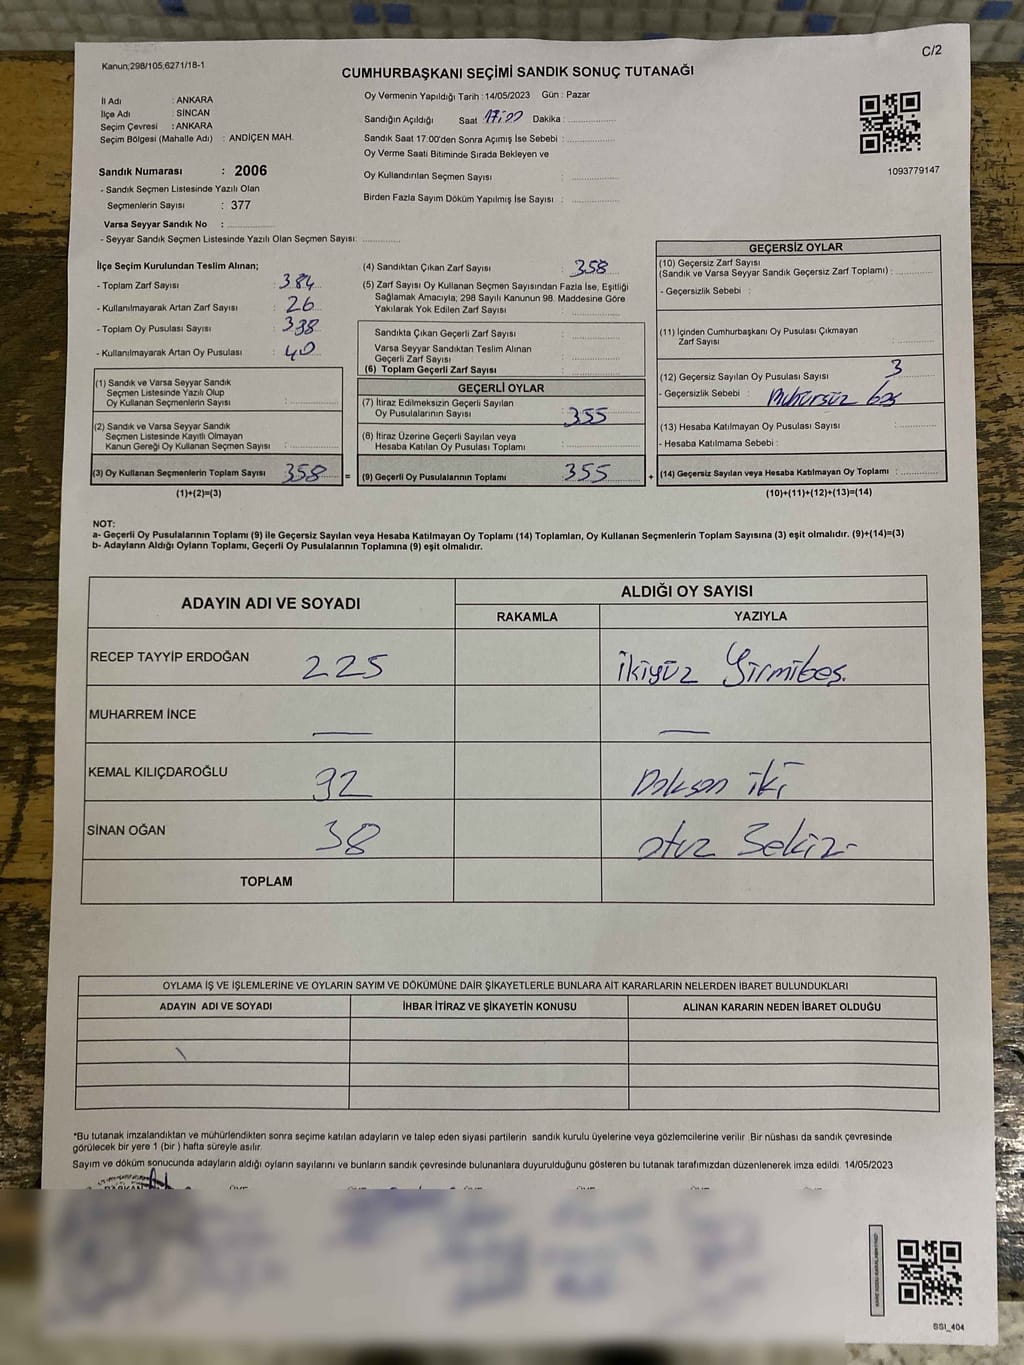 C/2
Kanun;298/105,6271/18-1
CUMHURBAŞKANI SEÇİMİ SANDIK SONUÇ TUTANAĞI
İl Adı : ANKARA
İlçe Adı : SİNCAN
Seçim Çevresi : ANKARA
Seçim Bölgesi (Mahalle Adı) : ANDİÇEN MAH.
Sandık Numarası : 2006
- Sandık Seçmen Listesinde Yazılı Olan
Seçmenlerin Sayısı : 377
Varsa Seyyar Sandık No :
- Seyyar Sandık Seçmen Listesinde Yazılı Olan Seçmen Sayısı:
Oy Vermenin Yapıldığı Tarih : 14/05/2023 Gün : Pazar
Sandığın Açıldığı Saat 17,00 Dakika :
Sandık Saat 17:00'den Sonra Açımış İse Sebebi :
Oy Verme Saati Bitiminde Sırada Bekleyen ve
Oy Kullandırılan Seçmen Sayısı :
Birden Fazla Sayım Döküm Yapılmış İse Sayısı :
1093779147
İlçe Seçim Kurulundan Teslim Alınan;
- Toplam Zarf Sayısı : 384
- Kullanılmayarak Artan Zarf Sayısı : 26
- Toplam Oy Pusulası Sayısı : 398
- Kullanılmayarak Artan Oy Pusulası : 40
(1) Sandık ve Varsa Seyyar Sandık
Seçmen Listesinde Yazılı Olup
Oy Kullanan Seçmenlerin Sayısı :
(2) Sandık ve Varsa Seyyar Sandık
Seçmen Listesinde Kayıtlı Olmayan
Kanun Gereği Oy Kullanan Seçmen Sayısı :
(3) Oy Kullanan Seçmenlerin Toplam Sayısı : 358 =
(1)+(2)=(3)
(4) Sandıktan Çıkan Zarf Sayısı : 358
(5) Zarf Sayısı Oy Kullanan Seçmen Sayısından Fazla İse, Eşitliği
Sağlamak Amacıyla; 298 Sayılı Kanunun 98. Maddesine Göre
Yakılarak Yok Edilen Zarf Sayısı :
Sandıkta Çıkan Geçerli Zarf Sayısı :
Varsa Seyyar Sandıktan Teslim Alınan
Geçerli Zarf Sayısı :
(6) Toplam Geçerli Zarf Sayısı :
GEÇERLİ OYLAR
(7) İtiraz Edilmeksizin Geçerli Sayılan
Oy Pusulalarının Sayısı : 355
(8) İtiraz Üzerine Geçerli Sayılan veya
Hesaba Katılan Oy Pusulaları Toplamı :
(9) Geçerli Oy Pusulalarının Toplamı : 355 +
GEÇERSİZ OYLAR
(10) Geçersiz Zarf Sayısı
(Sandık ve Varsa Seyyar Sandık Geçersiz Zarf Toplamı) :
- Geçersizlik Sebebi :
(11) İçinden Cumhurbaşkanı Oy Pusulası Çıkmayan
Zarf Sayısı :
(12) Geçersiz Sayılan Oy Pusulası Sayısı : 3
- Geçersizlik Sebebi : Mühürsüz boş
(13) Hesaba Katılmayan Oy Pusulası Sayısı :
- Hesaba Katılmama Sebebi :
(14) Geçersiz Sayılan veya Hesaba Katılmayan Oy Toplamı :
(10)+(11)+(12)+(13)=(14)
NOT:
a- Geçerli Oy Pusulalarının Toplamı (9) ile Geçersiz Sayılan veya Hesaba Katılmayan Oy Toplamı (14) Toplamları, Oy Kullanan Seçmenlerin Toplam Sayısına (3) eşit olmalıdır. (9)+(14)=(3)
b- Adayların Aldığı Oyların Toplamı, Geçerli Oy Pusulalarının Toplamına (9) eşit olmalıdır.
ADAYIN ADI VE SOYADI
ALDIĞI OY SAYISI
RAKAMLA YAZIYLA
RECEP TAYYİP ERDOĞAN 225 İkiyüz Yirmibeş.
MUHARREM İNCE — —
KEMAL KILIÇDAROĞLU 92 Doksan iki
SİNAN OĞAN 38 otuz Sekiz-
TOPLAM
OYLAMA İŞ VE İŞLEMLERİNE VE OYLARIN SAYIM VE DÖKÜMÜNE DAİR ŞİKAYETLERLE BUNLARA AİT KARARLARIN NELERDEN İBARET BULUNDUKLARI
ADAYIN ADI VE SOYADI İHBAR İTİRAZ VE ŞİKAYETİN KONUSU ALINAN KARARIN NEDEN İBARET OLDUĞU
*Bu tutanak imzalandıktan ve mühürlendikten sonra seçime katılan adayların ve talep eden siyasi partilerin sandık kurulu üyelerine veya gözlemcilerine verilir. Bir nüshası da sandık çevresinde
görülecek bir yere 1 (bir ) hafta süreyle asılır.
Sayım ve döküm sonucunda adayların aldığı oyların sayılarını ve bunların sandık çevresinde bulunanlara duyurulduğunu gösteren bu tutanak tarafımızdan düzenlenerek imza edildi. 14/05/2023
SSI_404